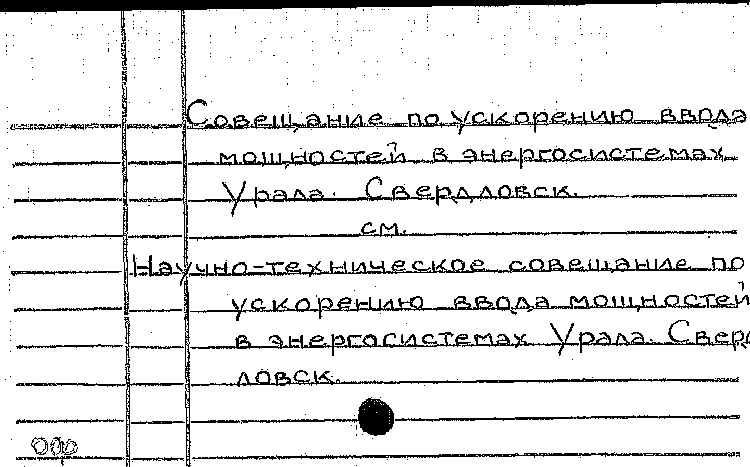 Совещание по ускорению ввода
мощностей в энергосистемах
Урала. Свердловск.
см.
Научно-техническое совещание по
ускорению ввода мощностей
в энергосистемах Урала. Сверд
ловск.